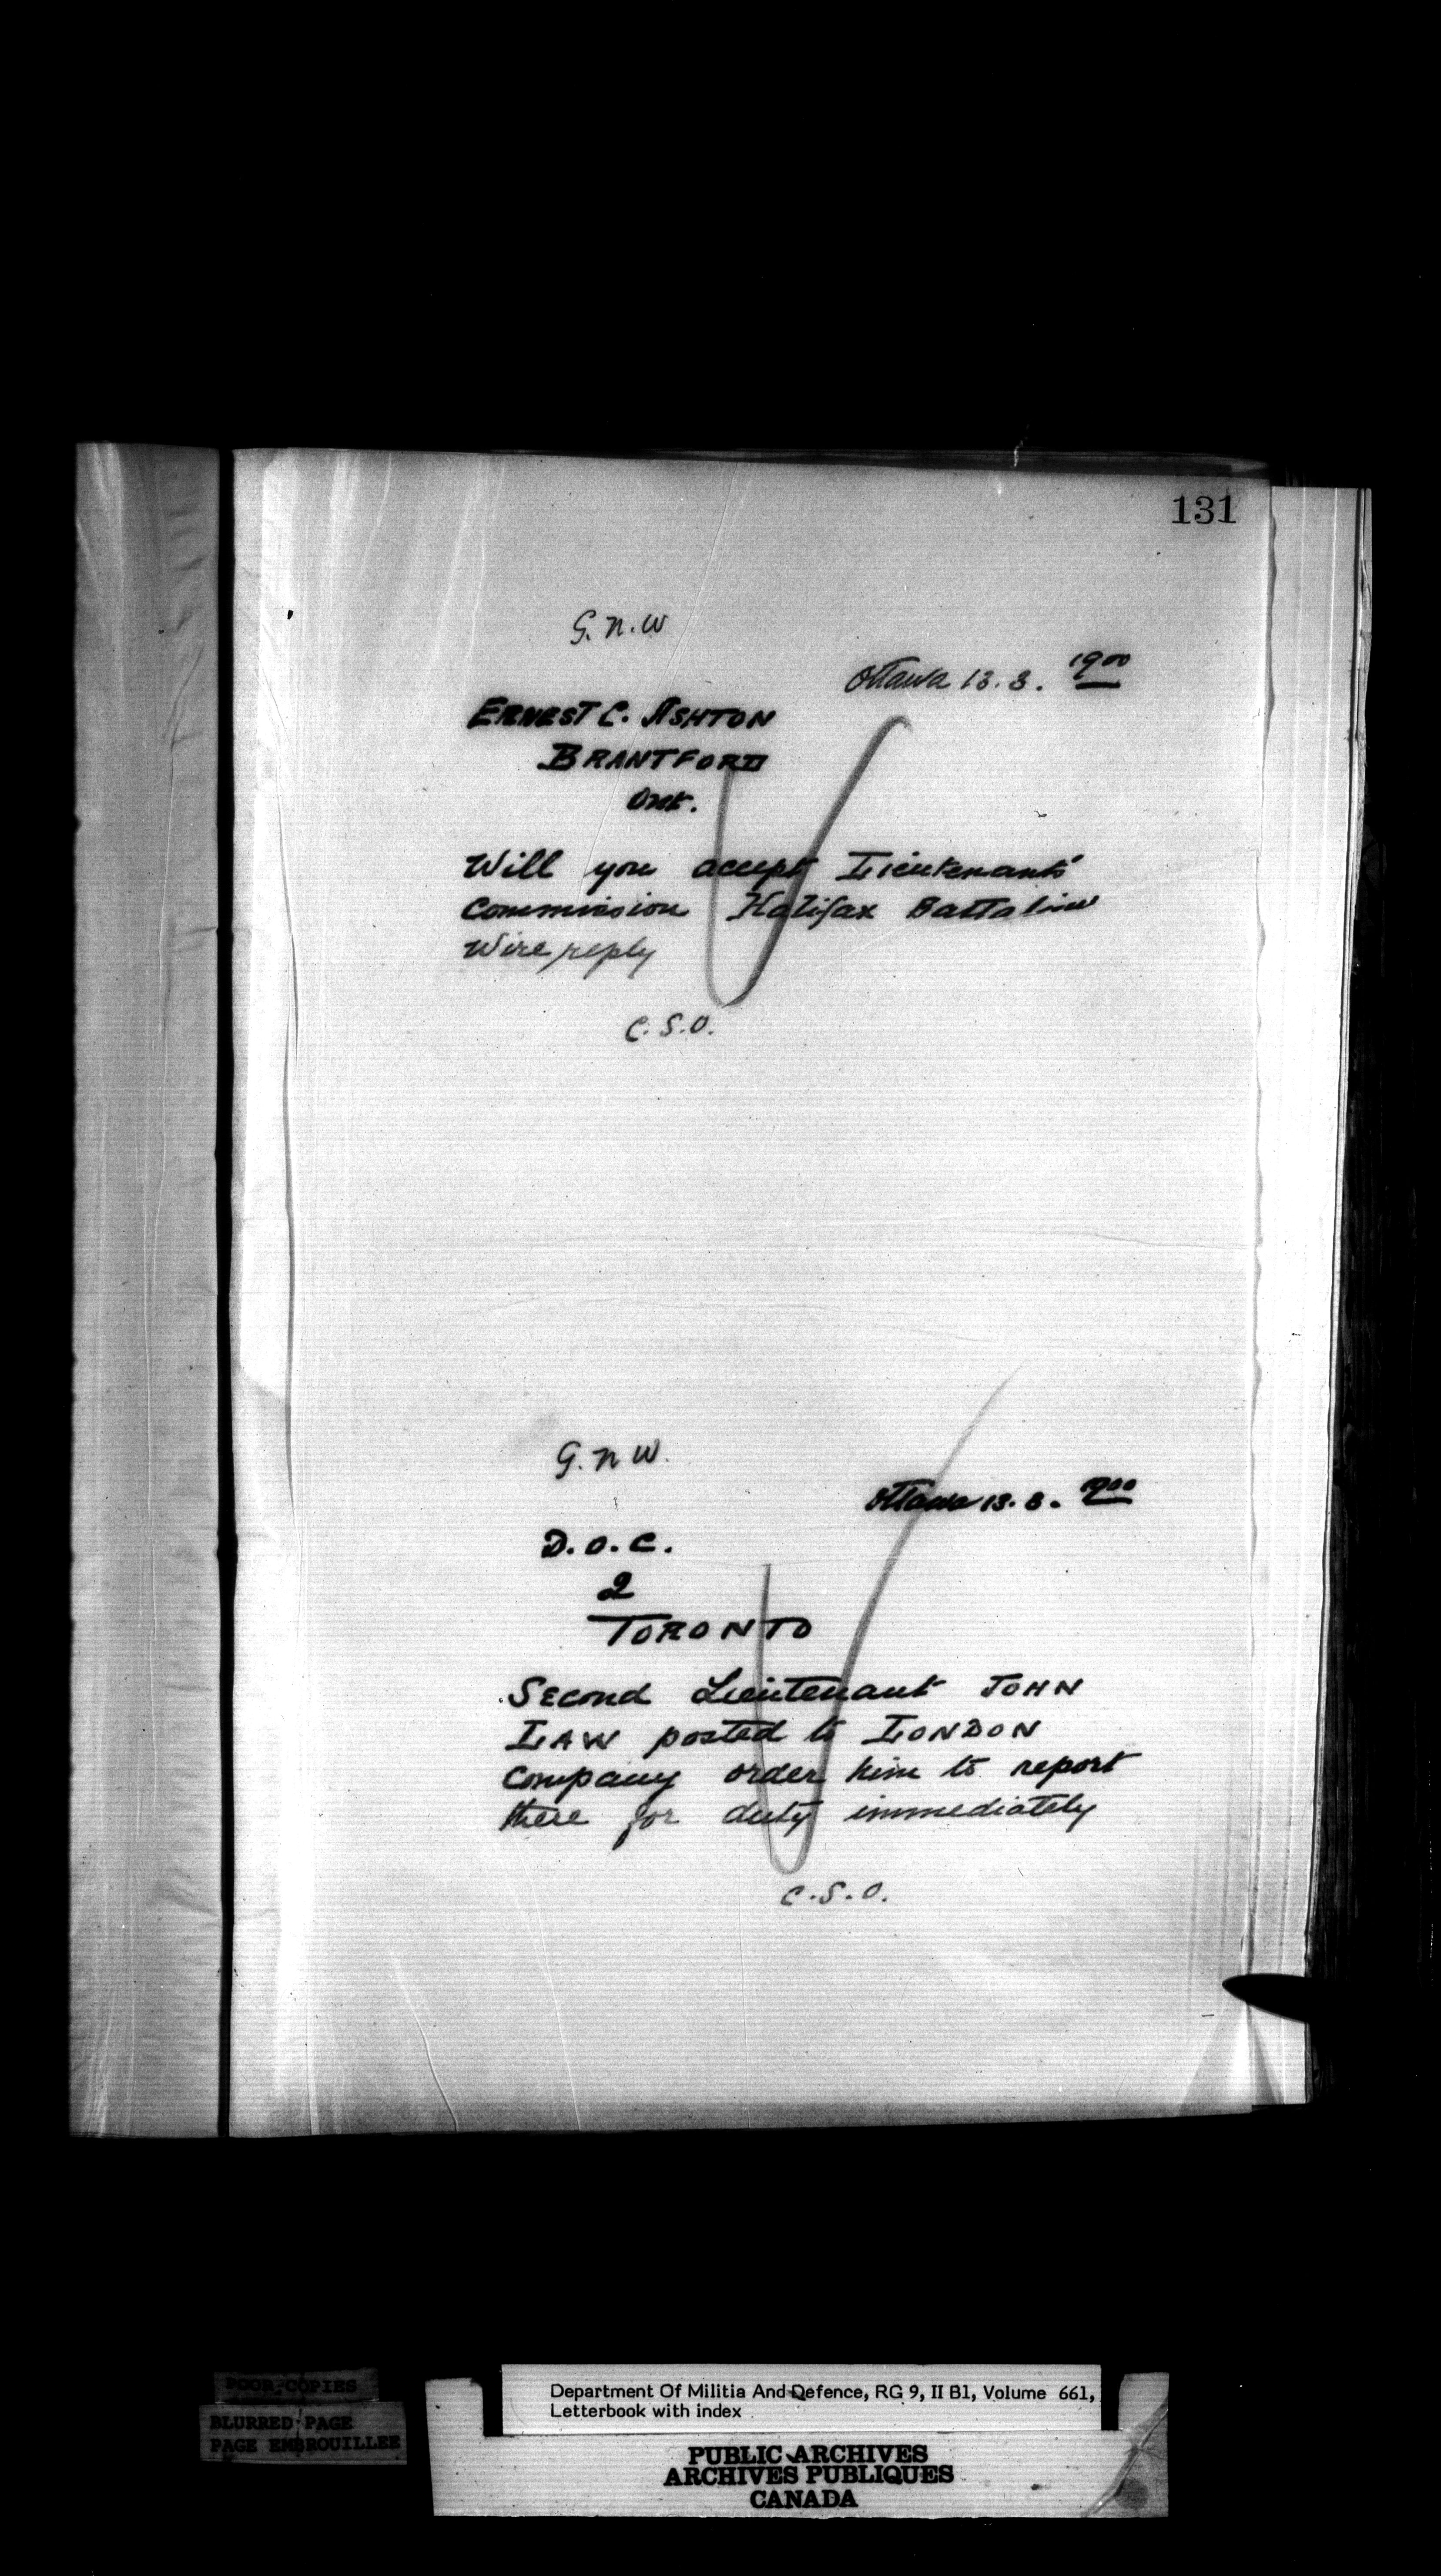 131
G.N.W
Ottawa 13.3.1900
ERNEST C. ASHTON
BRANTFORD
Ont.
Will you accept Lieutenants'
Commission Halifax Battalion
Wire reply
C.S.O.
G.N.W.
Ottawa 13.3.1900
D.O.C.
2
TORONTO
Second Lieutenant JOHN
LAW posted to LONDON
Company order him to report
there for duty immediately
C.S.O.
POOR COPIES
BLURRED PAGE
PAGE EMBROUILLEE
Department Of Militia And Defence, RG 9, II B1, Volume 661,
Letterbook with index
PUBLIC ARCHIVES
ARCHIVES PUBLIQUES
CANADA